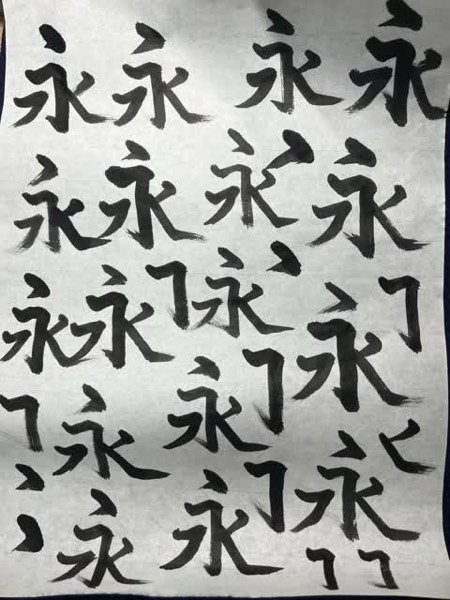 永永永永
永永永永
永永永永
永永
永永永